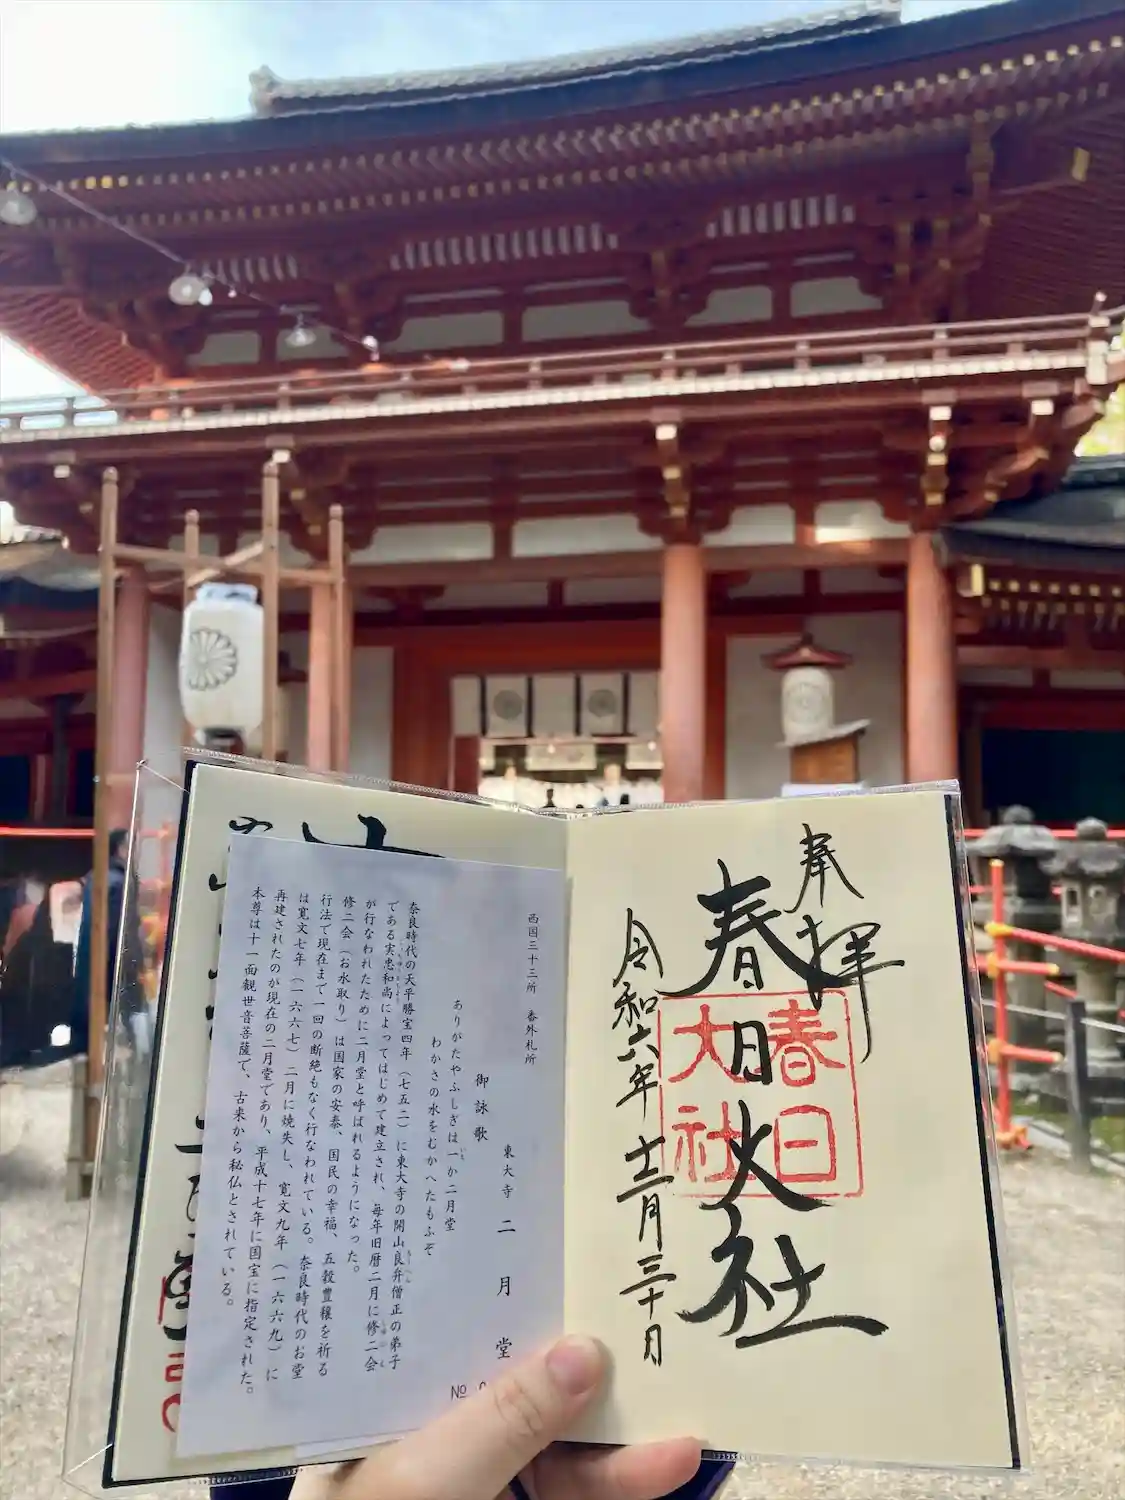 奉拝
春日大社
春日
大社
令和六年十二月三十日
西国三十三所　番外札所
東大寺　二月堂
御詠歌
ありがたやふしぎは一か二月堂
わかさの水をむかへたもふぞ
奈良時代の天平勝宝四年（七五二）に東大寺の開山良弁僧正の弟子
である実忠和尚によってはじめて建立され、毎年旧暦二月に修二会
が行なわれたために二月堂と呼ばれるようになった。
修二会（お水取り）は国家の安泰、国民の幸福、五穀豊穣を祈る
行法で現在まで一回の断絶もなく行なわれている。奈良時代のお堂
は寛文七年（一六六七）二月に焼失し、寛文九年（一六六九）に
再建されたのが現在の二月堂であり、平成十七年に国宝に指定された。
本尊は十一面観世音菩薩で、古来から秘仏とされている。
№